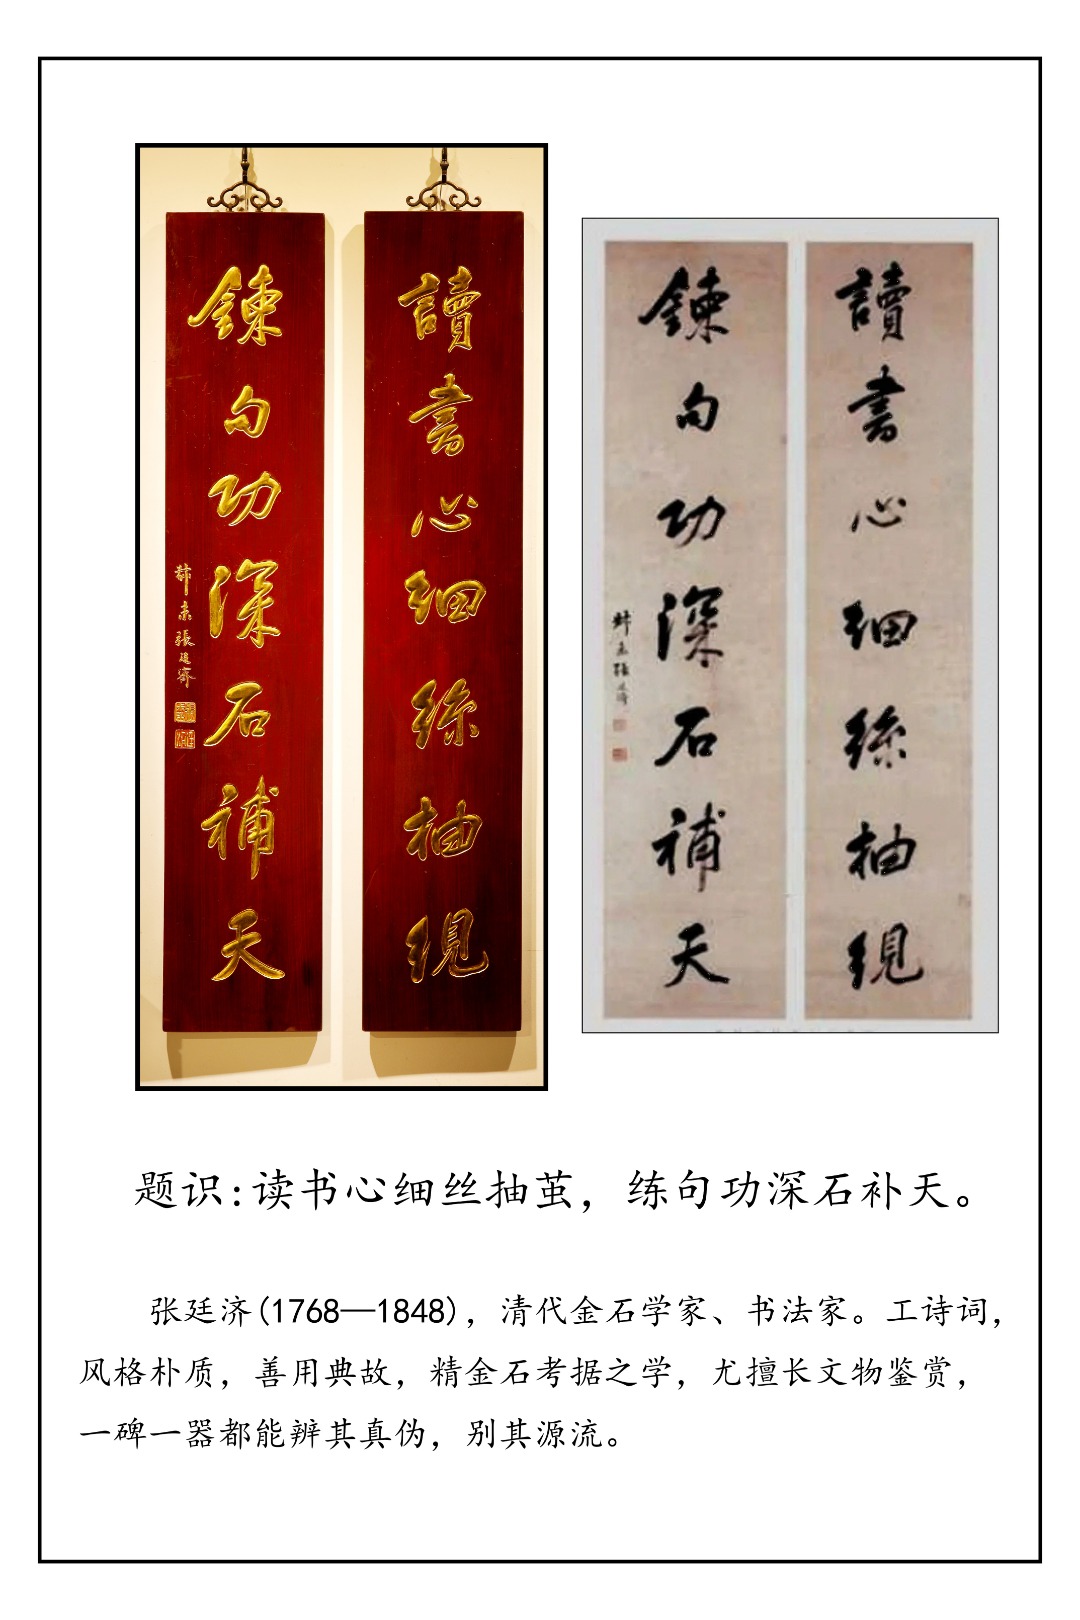 讀書心細絲抽絸
鍊句功深石補天
叔未張廷濟
讀書心細絲抽絸
鍊句功深石補天
叔未張廷濟
题识:读书心细丝抽茧，练句功深石补天。
张廷济(1768—1848)，清代金石学家、书法家。工诗词，
风格朴质，善用典故，精金石考据之学，尤擅长文物鉴赏，
一碑一器都能辨其真伪，别其源流。